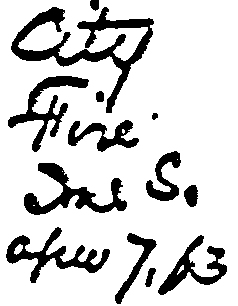 City
Fire
Ins S.
Apr 7, 63